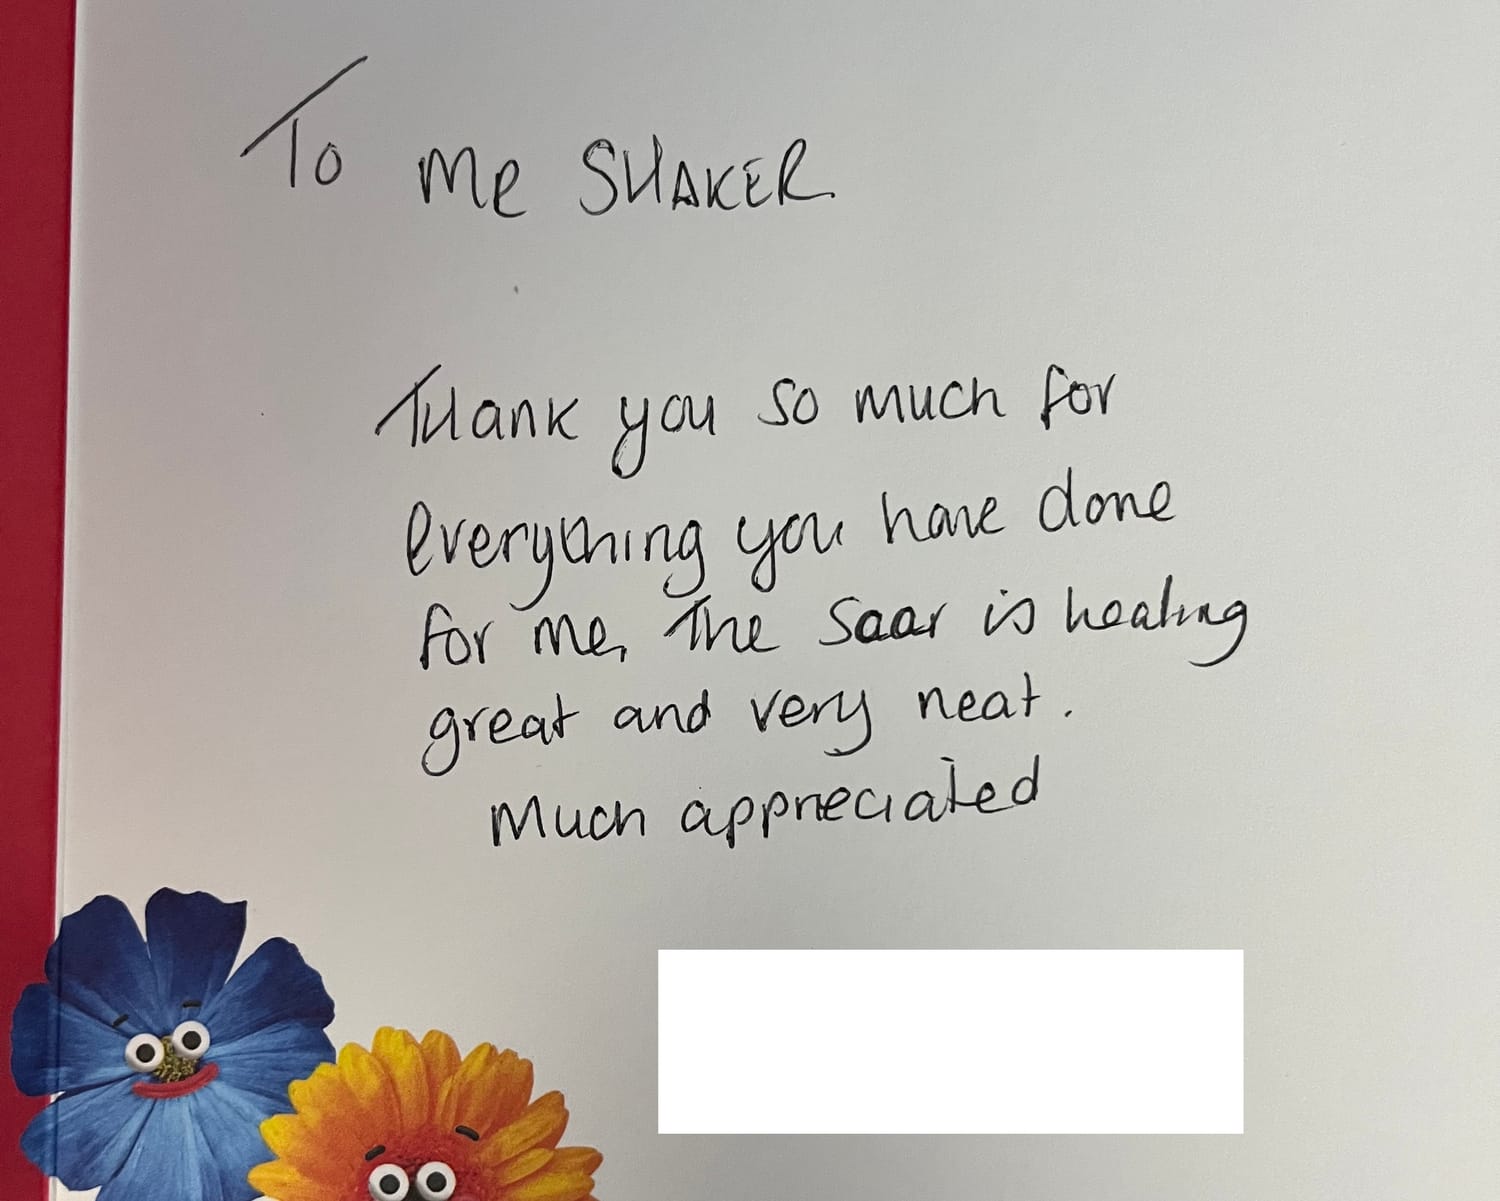 To Mr SHAKER
Thank you so much for
everything you have done
for me, The Scar is healing
great and very neat.
Much appreciated